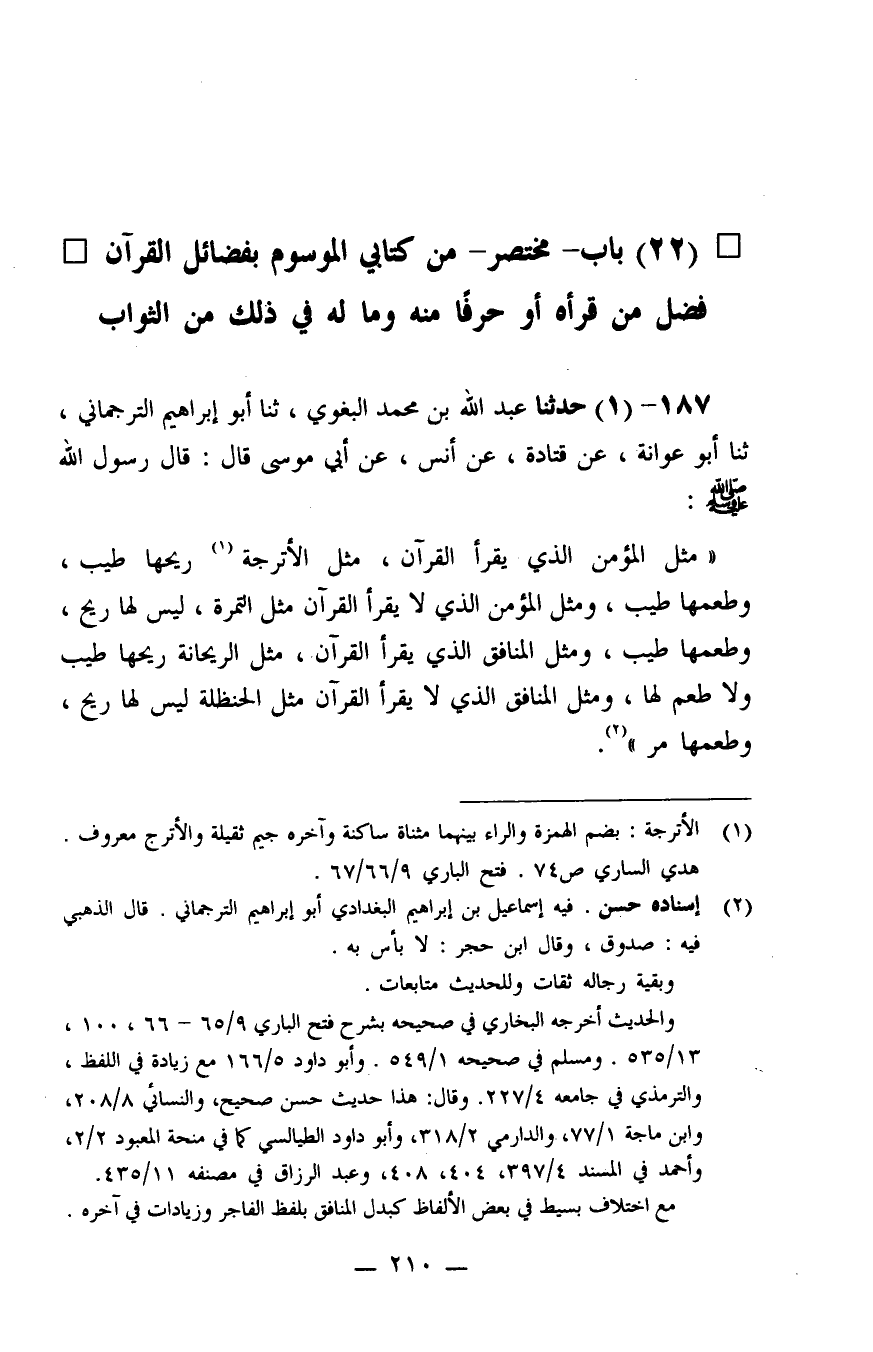 □ (٢٢) باب- مختصر- من كتابي الموسوم بفضائل القرآن □
فضل من قرأه أو حرفًا منه وما له في ذلك من الثواب
١٨٧- (١) حدثنا عبد الله بن محمد البغوي ، ثنا أبو إبراهيم الترجماني ،
ثنا أبو عوانة ، عن قتادة ، عن أنس ، عن أبي موسى قال : قال رسول الله
ﷺ :
« مثل المؤمن الذي يقرأ القرآن ، مثل الأترجة (١) ريحها طيب ،
وطعمها طيب ، ومثل المؤمن الذي لا يقرأ القرآن مثل التمرة ، ليس لها ريح ،
وطعمها طيب ، ومثل المنافق الذي يقرأ القرآن ، مثل الريحانة ريحها طيب
ولا طعم لها ، ومثل المنافق الذي لا يقرأ القرآن مثل الحنظلة ليس لها ريح ،
وطعمها مر »(٢).
(١) الأترجة : بضم الهمزة والراء بينهما مثناة ساكنة وآخره جيم ثقيلة والأترج معروف .
هدي الساري ص٧٤ . فتح الباري ٦٧/٦٦/٩ .
(٢) إسناده حسن . فيه إسماعيل بن إبراهيم البغدادي أبو إبراهيم الترجماني . قال الذهبي
فيه : صدوق ، وقال ابن حجر : لا بأس به .
وبقية رجاله ثقات وللحديث متابعات .
والحديث أخرجه البخاري في صحيحه بشرح فتح الباري ٦٥/٩ – ٦٦ ، ١٠٠ ،
٥٣٥/١٣ . ومسلم في صحيحه ٥٤٩/١ . وأبو داود ١٦٦/٥ مع زيادة في اللفظ ،
والترمذي في جامعه ٢٢٧/٤. وقال: هذا حديث حسن صحيح، والنسائي ٢٠٨/٨،
وابن ماجة ٧٧/١، والدارمي ٣١٨/٢، وأبو داود الطيالسي كما في منحة المعبود ٢/٢،
وأحمد في المسند ٣٩٧/٤، ٤٠٤، ٤٠٨، وعبد الرزاق في مصنفه ٤٣٥/١١.
مع اختلاف بسيط في بعض الألفاظ كبدل المنافق بلفظ الفاجر وزيادات في آخره .
— ٢١٠ —